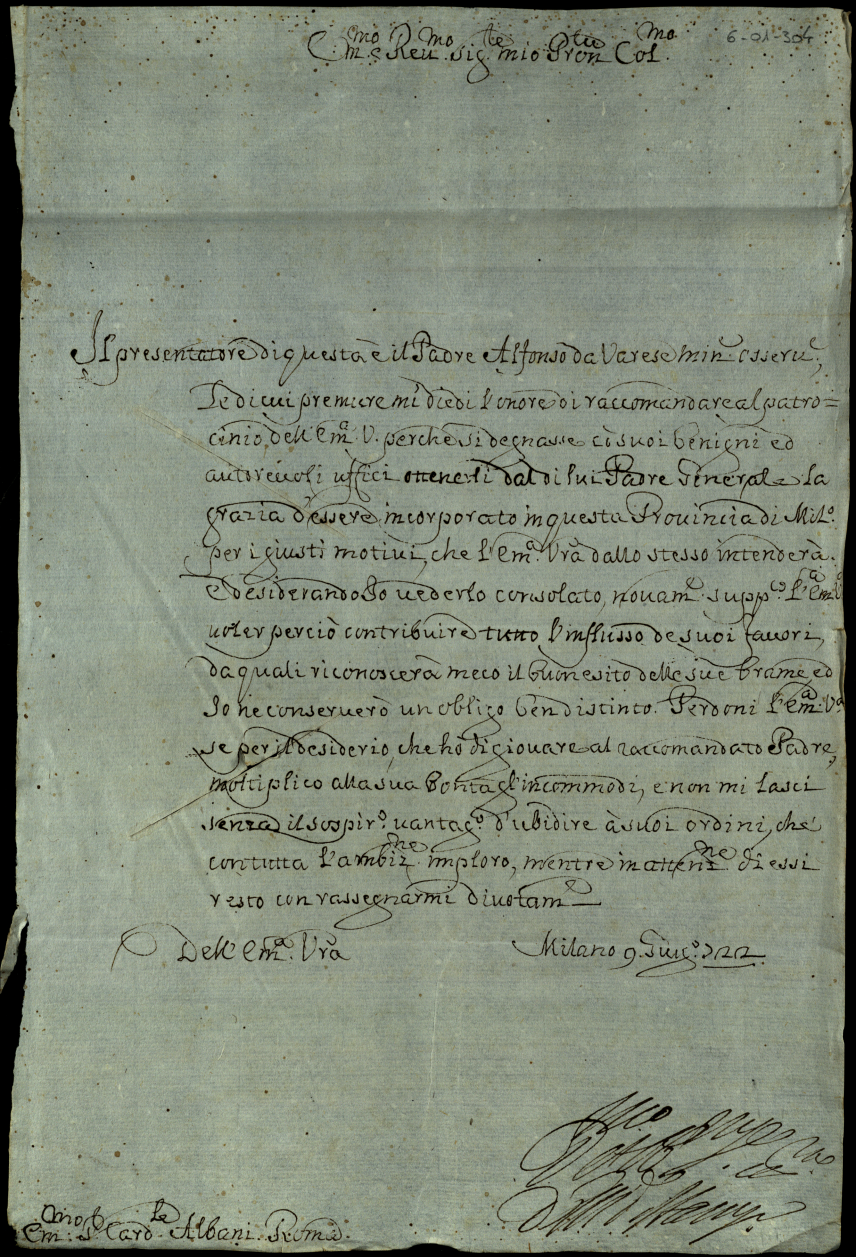 Em.mo e Reu.mo Sig.re mio Pron Col.mo
6-01-304
Il presentatore di questa è il Padre Alfonso da Varese Min.e Osseru.e,
le di cui premure mi diedi l'onore di raccomandare al patro=
cinio dell'Em.a V. perche si degnasse co suoi benigni ed
autoreuoli uffici ottenerli dal di lui Padre Generale la
grazia d'essere incorporato in questa Prouincia di Mil.o
per i giusti motiui, che l'Em.a Vra dallo stesso intenderà.
E desiderando Io uederlo consolato, nouam.e supp.co l'Em.a V.a
uoler perciò contribuire tutto l'influsso de suoi fauori,
da quali riconoscerà meco il buon esito delle sue brame, ed
Io ne conseruerò un obligo ben distinto. Perdoni l'Em.a V.a
se per il desiderio, che hò di giouare al raccomandato Padre,
moltiplico alla sua Bontà gl'incommodi, e non mi lasci
senza il sospir.o uantag.o d'ubidire à suoi ordini, che
con tutta l'ambiz.ne imploro, mentre in attenz.ne di essi
resto con rassegnarmi diuotam.e
Dell'Em.a Vra
Milano 9. Giug.o 722.
Em.mo S. Card.le Albani. Roma.